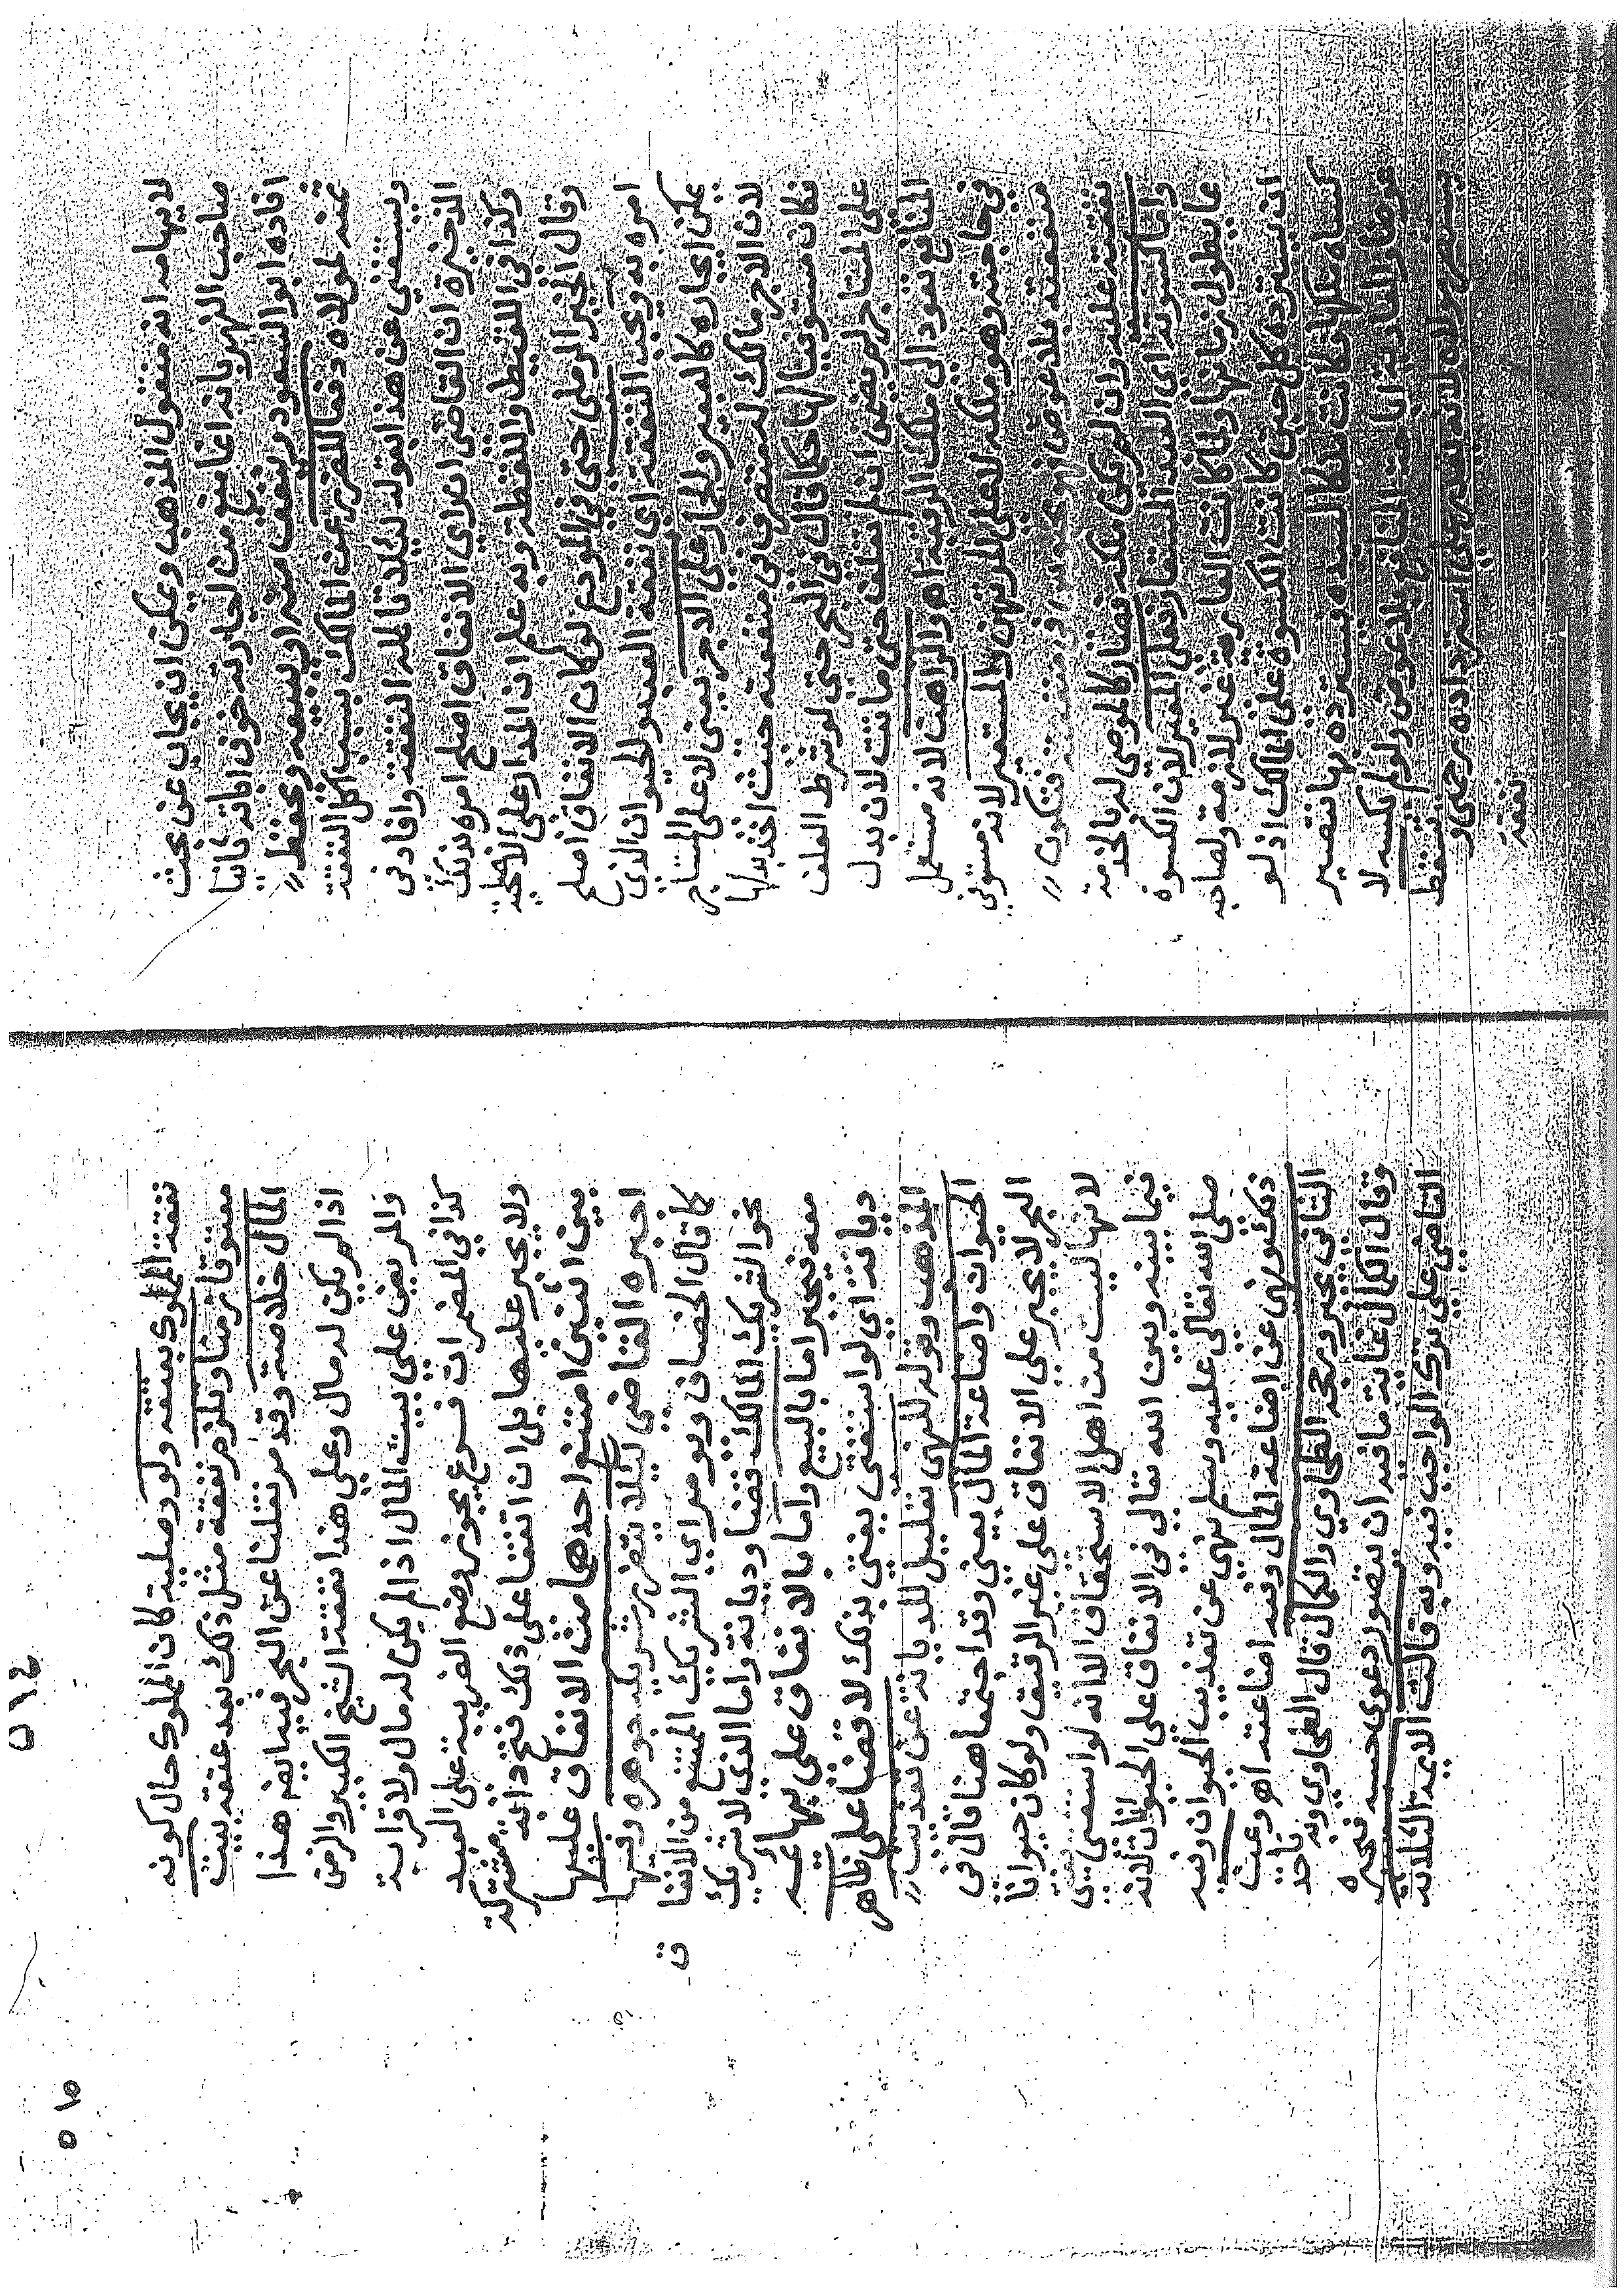 لايهامه انه منقول المذهب ويمكن ان يجاب عن بحث
صاحب النهر بانه انما يتبع من اجارته خوف اباقه ثانيا
افاده ابو السعود بتصرف منه او يبيعه ويحفظ
ثمنه لمولاه دفعا للضرر عن المالك بسبب اكل النفقة
ويستغني عن هذا بقوله ليلا تاكله النفقة وافاد في
الذخيرة ان القاضي ان راى الانفاق اصلح امره بذلك
وكذا في اللقيط واللقطة وبه علم ان المدار على الاصلح
وقال الخير الرملي حتى في المودع لو كان الانفاق اصلح
امره به ويجب النفقة اى نفقة العبد والحيوان الذى
يمكن ايجاره كالبعير والحمار على الآجر يعنى لا على المستاجر
لان الآجر مالك له متصرف في منفعته حيث اخذ بدلها
فكان مستوفيا لها حكما قال في البحر حتى لو شرط العلف
على المستاجر لم يضمن اذا لم يعلف حتى ماتت لان بدل
المنافع تعود الى ملك الرقبة اه والراهن لانه مستعمل
في حاجته وهو ملكه لا على المرتهن والمستعير لانه مستوفي
منفعته بلا عوض فهو محبوس في منفعته فتكون
نفقته عليه وان لم يكن ملكه فصار كالموصى له بالخدمة
واما كسوته اى العبد المستعار فعلى المعير لان الكسوة
مما يطول زمانها ولما كانت العارية غير لازمة ولصاحبه
ان يسترده كل حين كانت الكسوة على المالك اذ لو
كساه ملكها فكانت ملكا لسيده يسترده بها فتصير
عوضا والعارية اباحة المنافع بلا عوض ولو لم يكسه لا
يستضر مولاه لانه يقدر على استرداده حتى وتسقط
نفقة
٥١٤
نفقة المملوك بعتقه ولو وصلية كان المملوك حال كونه
معتوقا زمنا وتلزم نفقة مثل ذلك بعد عتقه بيت
المال خلاصة وقد مر نقلنا عن البحر فيما نصه هذا
اذا لم يكن له مال وعلى هذا نفقة الشيخ الكبير والزمن
والمريض على بيت المال اذا لم يكن له مال ولا قرابة
كذا في المضمرات فروع يجوز وضع الضريبة على العبد
ولا يجبر عليها بل ان اتفقا على ذلك فتح دابة مشتركة
بين اثنين امتنع احدهما من الانفاق عليها
اجبره القاضي ليلا يتضرر شريكه جوهره وفيها
كما قال الخصاف ويومر اي الشريك الممتنع من الانفاق
نحو الشريك المالك قضا وديانة واما الذي لا شريك
معه فيجبر اما بالبيع واما بالانفاق على بهائمه
ديانة اي لو استفتى يفتي بذلك لا قضا على ظاهر
المذهب وقوله للنهى تعليل للديانة عن تعذيب
الحيوان واضاعة المال يعني وقد اجتمعا هنا قال في
البحر لا يجبر على الانفاق على غير الرقيق ولو كان حيوانا
لانها ليست من اهل الاستحقاق الا انه لو استفتى يفتى
فيما بينه وبين الله تعالى في الانفاق على الحيوان لانه
صلى الله تعالى عليه وسلم نهى عن تعذيب الحيوان وفيه
ذلك ونهى عن اضاعة المال وفيه اضاعته اه وعن
الثاني يجبر ورجحه الطحاوي والكمال قال الطحاوي وبه ناخذ
وقال الكمال غاية ما فيه ان يتصور دعوى حسبة فيجبره
القاضي على ترك الواجب فيه وبه قالت الايمة الثلاثة
٥١٥